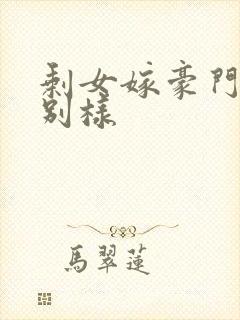 剩女嫁豪門
別樣
馬翠蓮